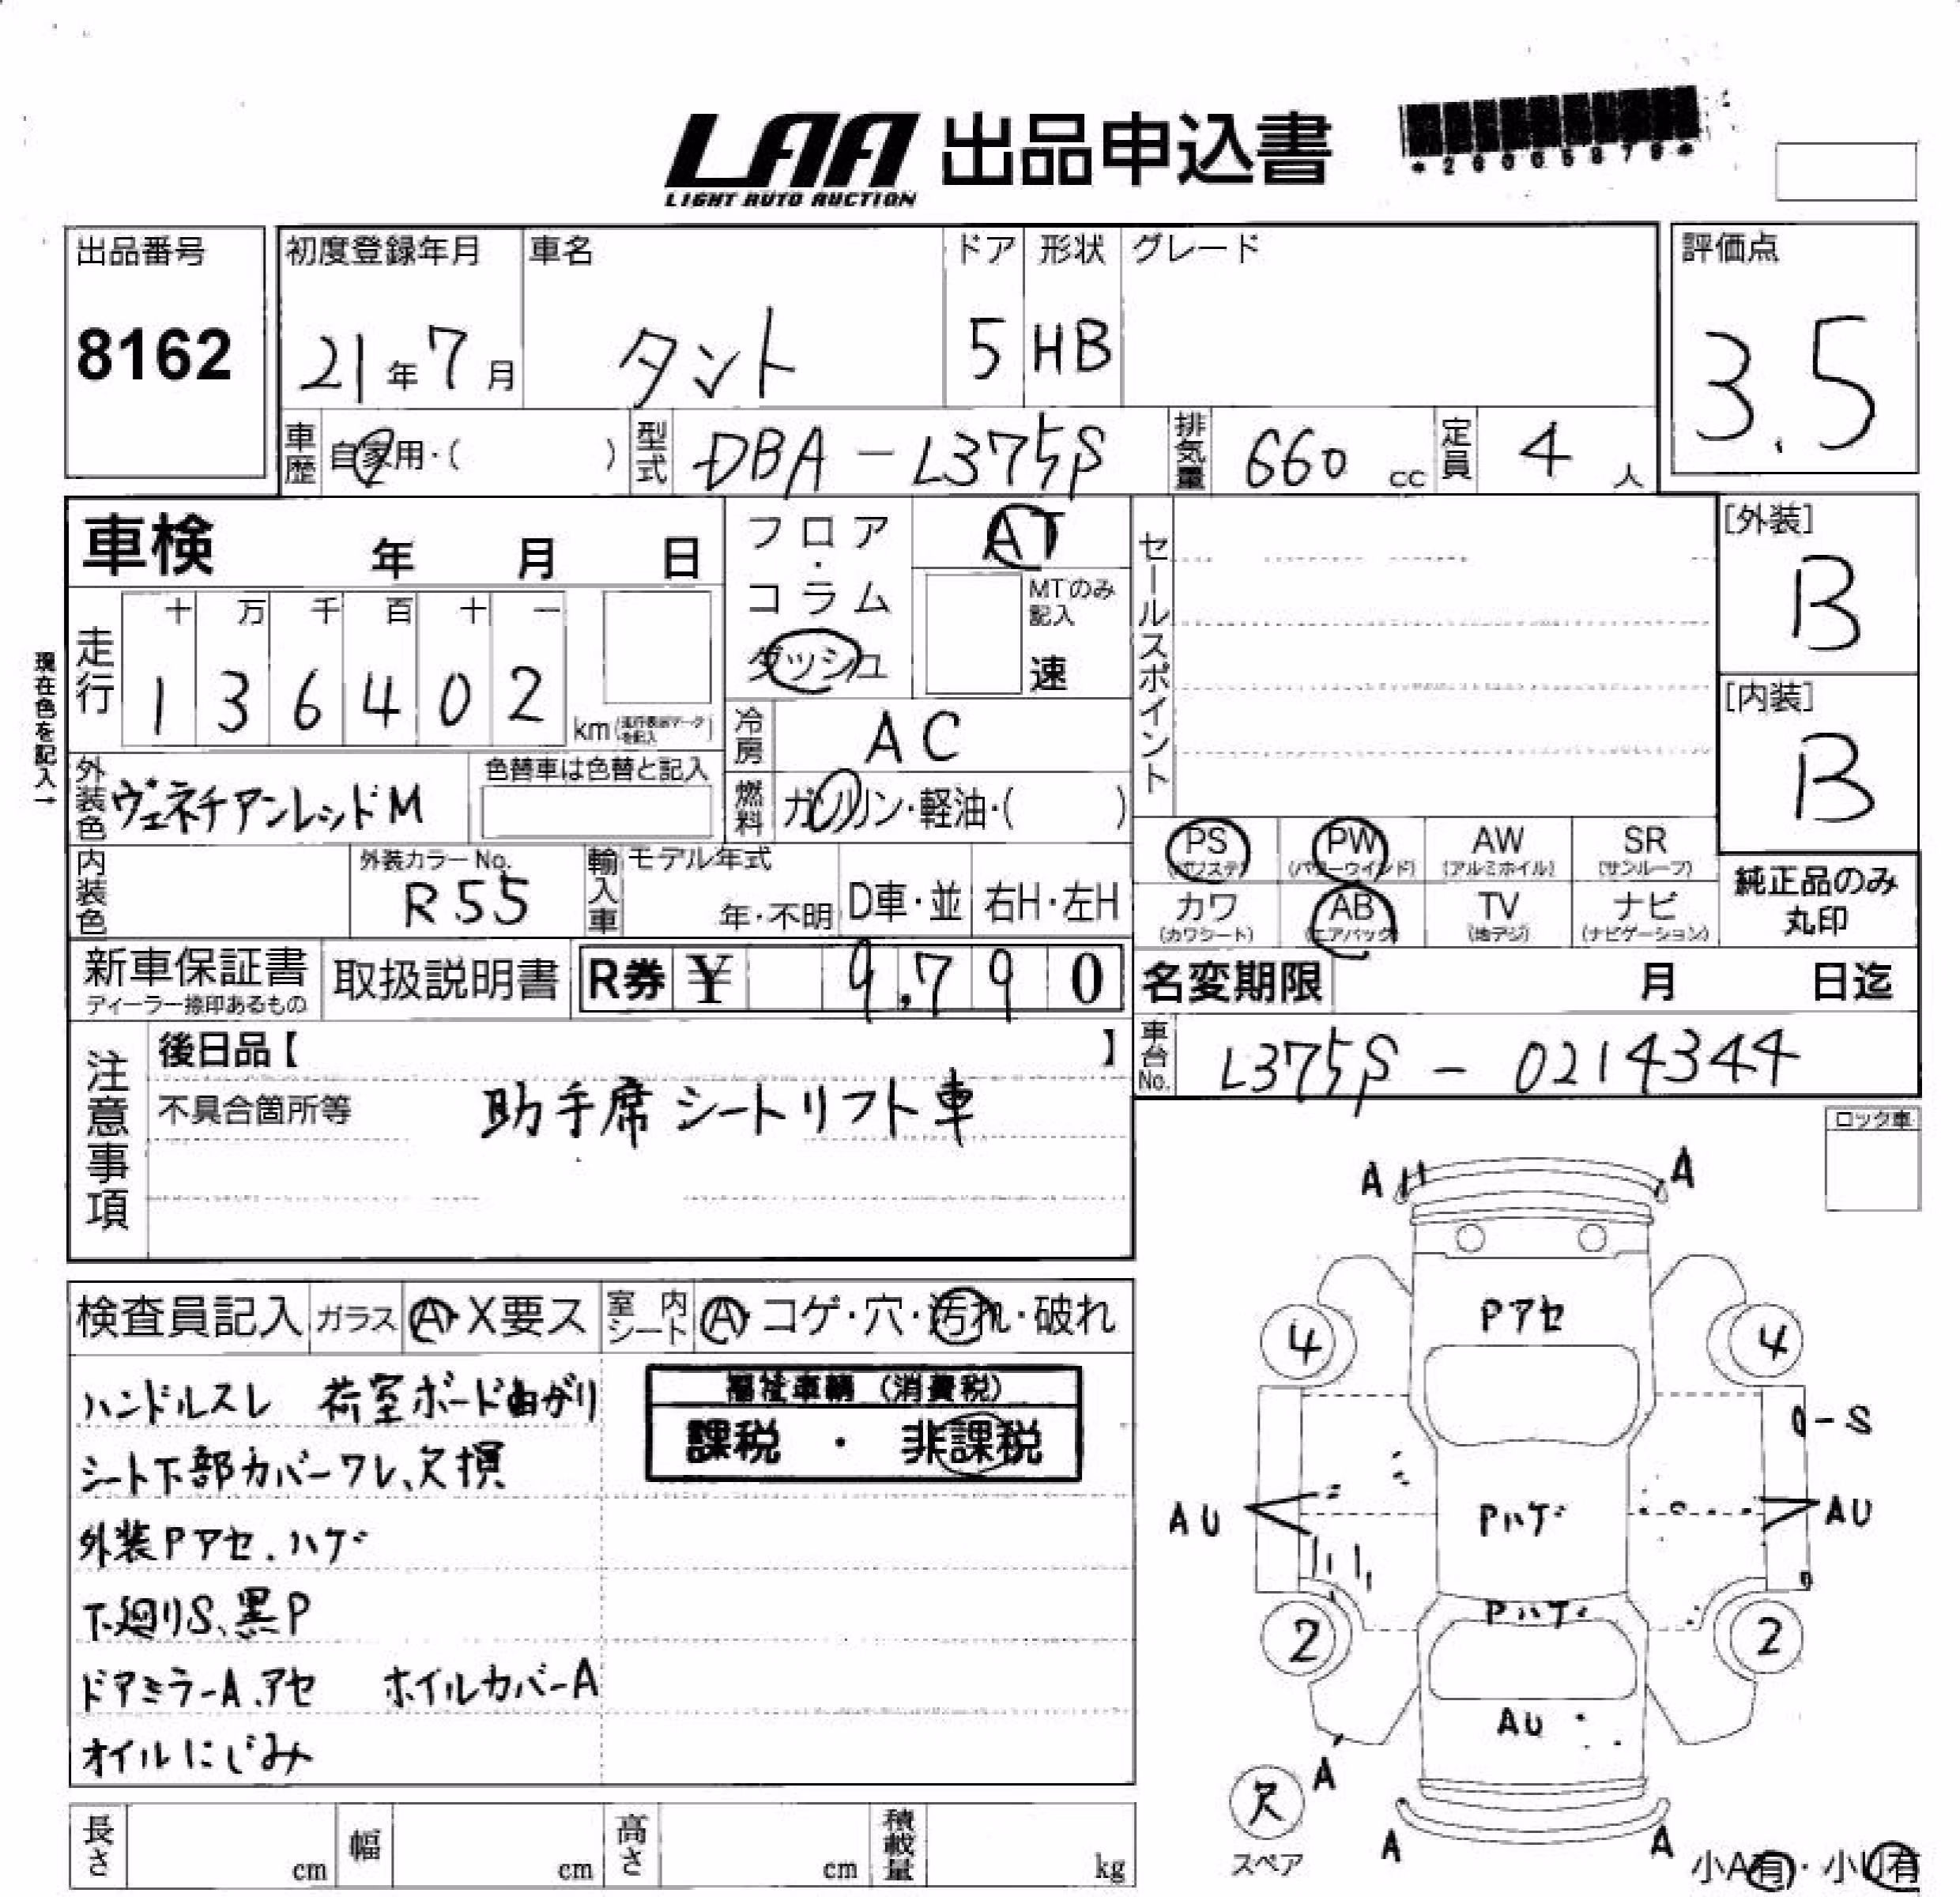 LAA 出品申込書
LIGHT AUTO AUCTION
出品番号
8162
初度登録年月
21年7月
車名
タント
ドア
5
形状
HB
グレード
評価点
3.5
車歴
自家用・( )
型式
DBA-L375S
排気量
660 cc
定員
4 人
車検 年 月 日
フロア・コラム
ダッシュ
AT
MTのみ記入
速
セールスポイント
[外装]
B
[内装]
B
現在色を記入→
走行
十 万 千 百 十 一
1 3 6 4 0 2
km
冷房
AC
外装色
ヴェネチアンレッドM
色替車は色替と記入
燃料
ガソリン・軽油・( )
内装色
外装カラーNo.
R55
輸入車
モデル年式
年・不明
D車・並
右H・左H
PS
(パワステ)
PW
(パワーウインド)
AW
(アルミホイル)
SR
(サンルーフ)
カワ
(カワシート)
AB
(エアバック)
TV
(地デジ)
ナビ
(ナビゲーション)
純正品のみ
丸印
新車保証書
ディーラー捺印あるもの
取扱説明書
R券 ¥ 9,790
名変期限 月 日迄
車台No.
L375S-0214344
注意事項
後日品【 】
不具合箇所等
助手席シートリフト車
ロック車
検査員記入
ガラス
A・X要ス
室内シート
A・コゲ・穴・汚れ・破れ
ハンドルスレ 荷室ボード曲がり
シート下部カバーワレ、欠損
外装Pアセ、ハゲ
下廻りS、黒P
ドアミラーA、アセ ホイルカバーA
オイルにじみ
福祉車輌 (消費税)
課税 ・ 非課税
A
A
Pアセ
4
4
S
AU
Pハゲ
AU
Pハゲ
2
2
AU
A
欠
スペア
A
A
小A有・小U有
長さ cm
幅 cm
高さ cm
積載量 kg